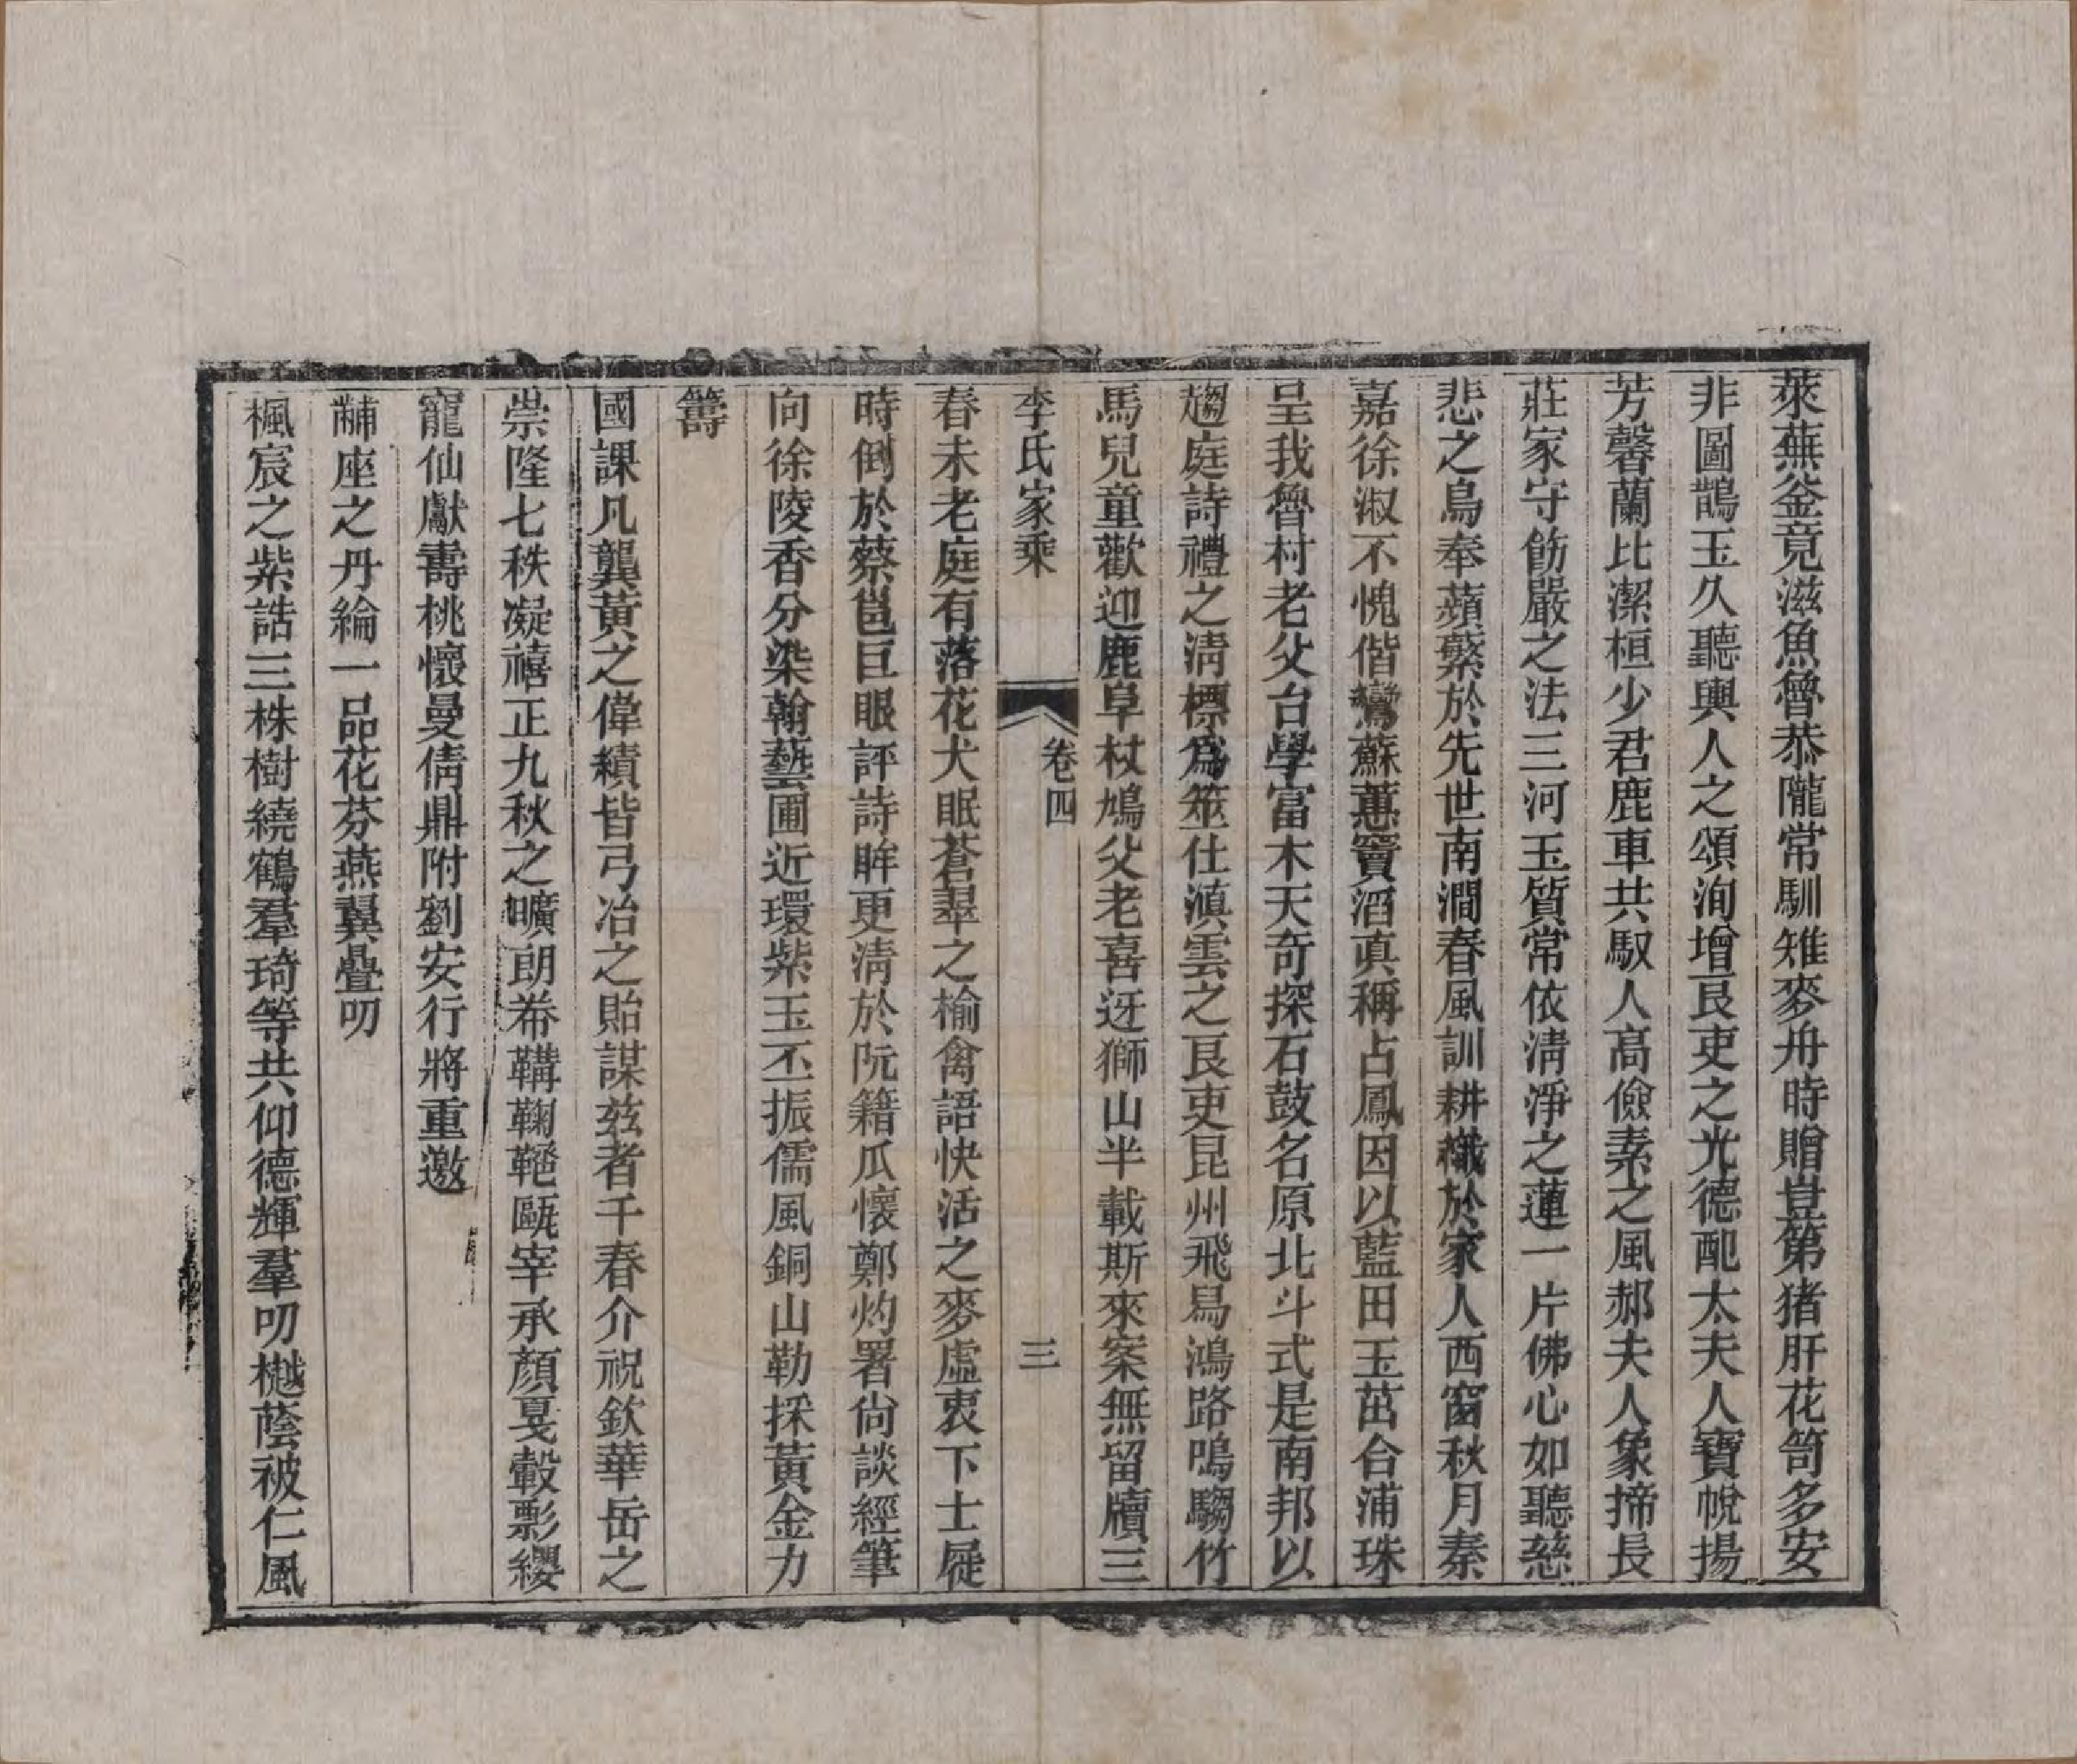 萊蕪釜竟滋魚魯恭隴常馴雉麥舟時贈豈第猪肝花笥多安
非圖鵲玉久聽輿人之頌洵增良吏之光德配太夫人寶帨揚
芳馨蘭比潔桓少君鹿車共馭人高儉素之風郝夫人象揥長
莊家守飭嚴之法三河玉質常依淸淨之蓮一片佛心如聽慈
悲之鳥奉蘋蘩於先世南澗春風訓耕織於家人西窗秋月秦
嘉徐淑不愧偕鸞蘇蕙竇滔眞稱占鳳因以藍田玉茁合浦珠
呈我魯村老父台學富木天奇探石鼓名原北斗式是南邦以
趨庭詩禮之淸標爲筮仕滇雲之良吏昆州飛舄鴻路鳴騶竹
馬兒童歡迎鹿阜杖鳩父老喜迓獅山半載斯來案無留牘三
李氏家乘
卷四
三
春未老庭有落花犬眠蒼翠之榆禽語快活之麥虛衷下士屣
時倒於蔡邕巨眼評詩眸更淸於阮籍瓜懷鄭灼署尙談經筆
向徐陵香分染翰藝圃近環紫玉丕振儒風銅山勒採黃金力
籌
國課凡龔黃之偉績皆弓冶之貽謀玆者千春介祝欽華岳之
崇隆七秩凝禧正九秋之曠朗帣鞲鞠䠆甌宰承顏戛轂影纓
寵仙獻壽桃懷曼倩鼎附劉安行將重邀
黼座之丹綸一品花芬燕翼疊叨
楓宸之紫誥三株樹繞鶴羣琦等共仰德輝羣叨樾蔭被仁風